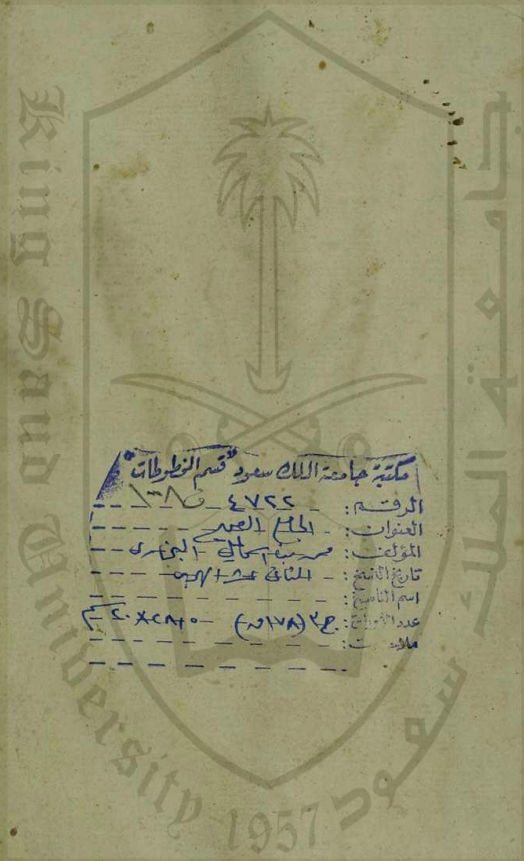 King Saud University
جامعة الملك سعود
1957
مكتبة جامعة الملك سعود "قسم المخطوطات"
الرقم: ٤٧٢٢
العنوان: الجامع الصحيح
المؤلف: محمد بن اسماعيل البخارى
تاريخ النسخ: الثانى عشر الهجرى
اسم الناسخ:
عدد الأوراق: ج٣ (١٧٨ق) سم
ملاحظات: